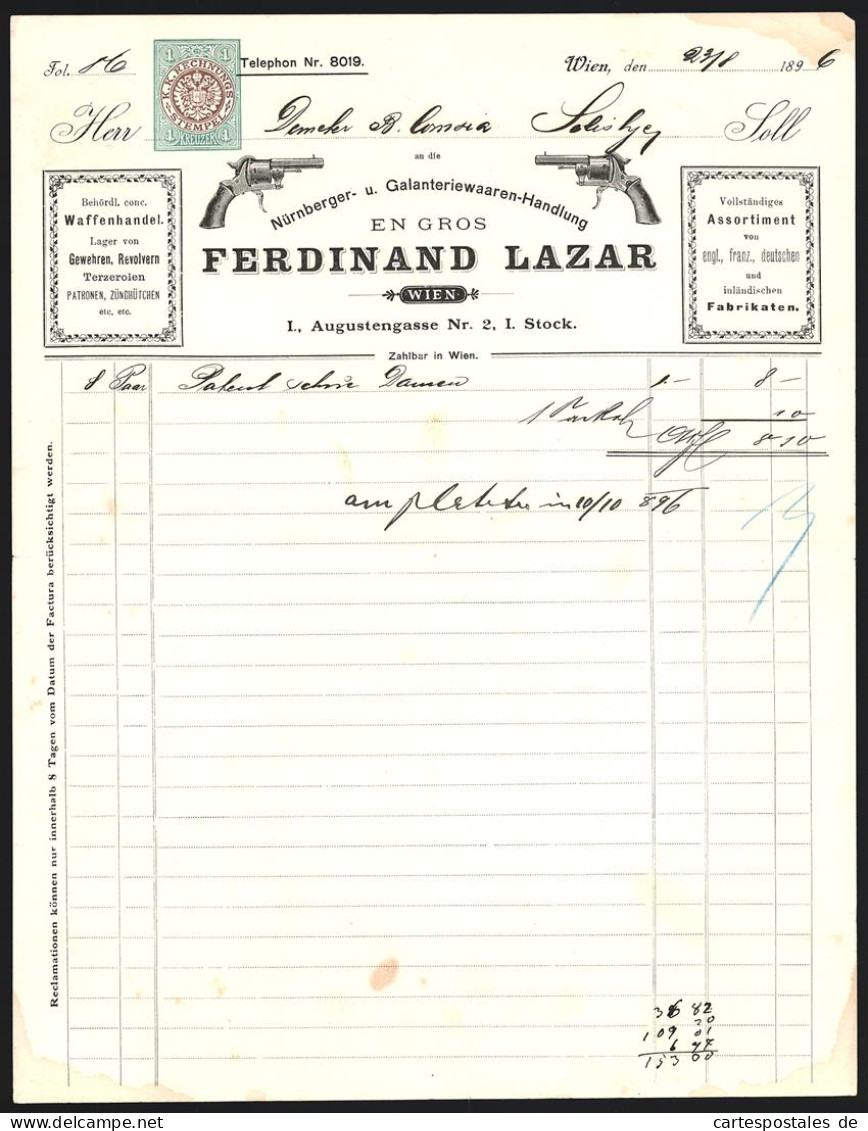 Fol. 86
Telephon Nr. 8019.
Wien, den 23/8 1896
1 K. K. RECHNUNGS 1
STEMPEL
1 KREUZER 1
Herr Demeter B. Soll
an die
Nürnberger- u. Galanteriewaaren-Handlung
EN GROS
FERDINAND LAZAR
WIEN
I., Augustengasse Nr. 2, I. Stock.
Behördl. conc.
Waffenhandel.
Lager von
Gewehren, Revolvern
Terzerolen
PATRONEN, ZÜNDHÜTCHEN
etc. etc.
Vollständiges
Assortiment
von
engl., franz., deutschen
und
inländischen
Fabrikaten.
Zahlbar in Wien.
8 Paar Patent Damen 1.- 8 -
1 10
8 10
in 10/10 896
Reclamationen können nur innerhalb 8 Tagen vom Datum der Factura berücksichtigt werden.
36 82
20
109 01
6 97
153 00
cartespostales.de